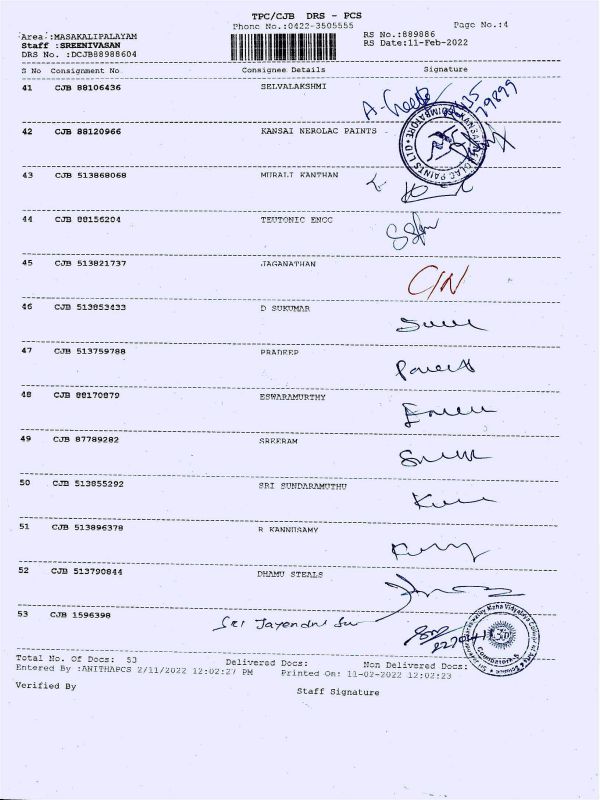 TPC/CJB DRS - PCS
Phone No.:0422-3505555
Page No.:4
Area :MASAKALIPALAYAM
RS No.:889886
Staff :SREENIVASAN
RS Date:11-Feb-2022
DRS No. :DCJB88988604
S No Consignment No Consignee Details Signature
41 CJB 88106436 SELVALAKSHMI
42 CJB 88120966 KANSAI NEROLAC PAINTS
43 CJB 513868068 MURALI KANTHAN
44 CJB 88156204 TEUTONIC ENGG
45 CJB 513821737 JAGANATHAN
46 CJB 513853433 D SUKUMAR
47 CJB 513759788 PRADEEP
48 CJB 88170879 ESWARAMURTHY
49 CJB 87789282 SREERAM
50 CJB 513855292 SRI SUNDARAMUTHU
51 CJB 513896378 R KANNUSAMY
52 CJB 513790844 DHAMU STEALS
53 CJB 1596398 Sri Jayendra
Total No. Of Docs: 53 Delivered Docs: Non Delivered Docs:
Entered By :ANITHAPCS 2/11/2022 12:02:27 PM Printed On: 11-02-2022 12:02:23
Verified By Staff Signature